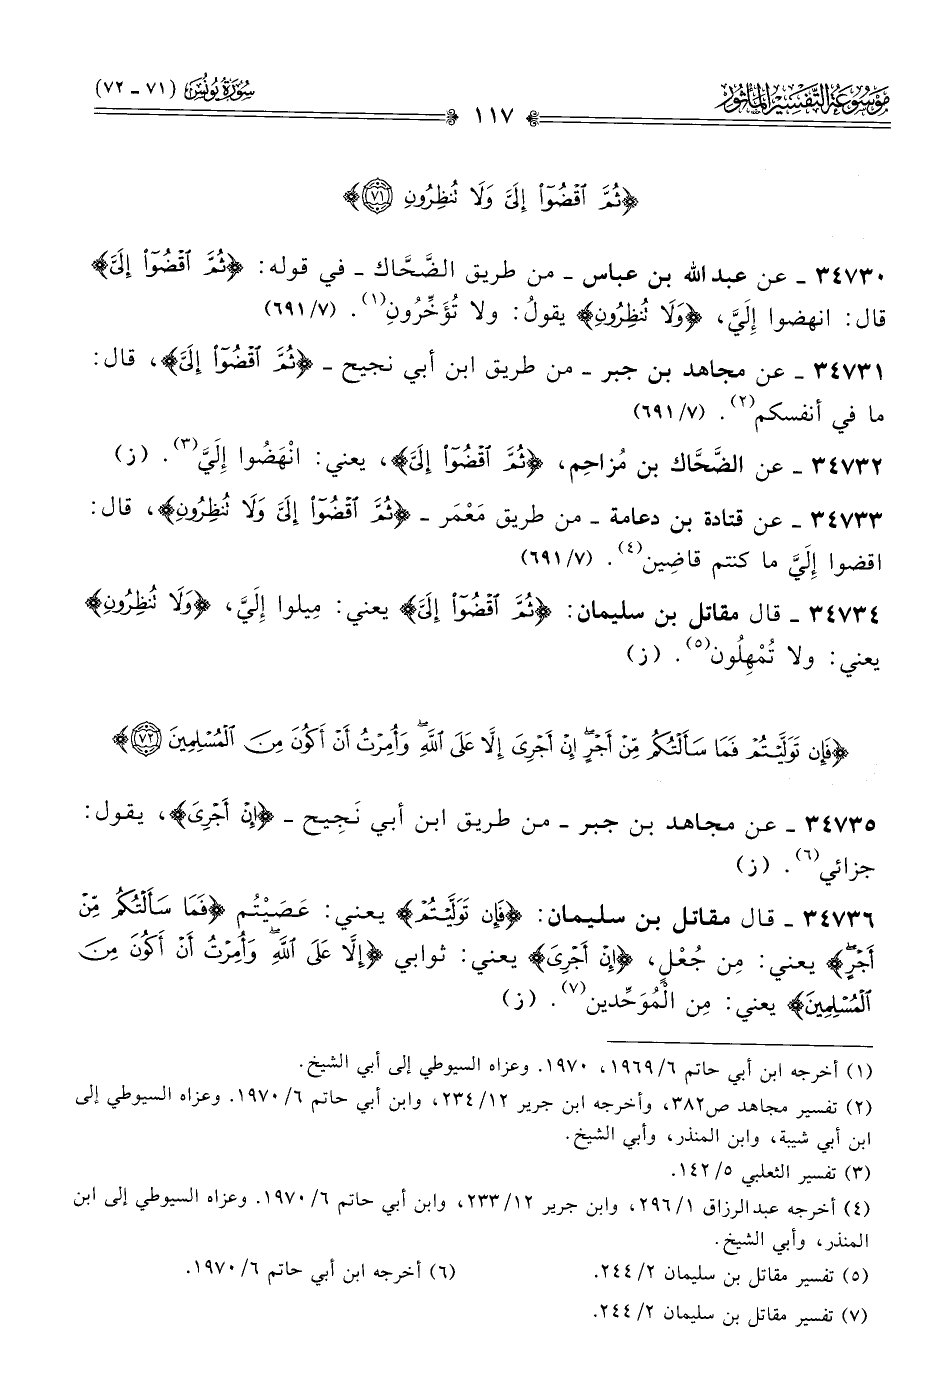 موسوعة التفسير المأثور
١١٧
سورة يونس (٧١ - ٧٢)
﴿ثُمَّ ٱقْضُوٓا۟ إِلَىَّ وَلَا تُنظِرُونِ ٧١﴾
٣٤٧٣٠ ـ عن عبد الله بن عباس ـ من طريق الضَّحَّاك ـ في قوله: ﴿ثُمَّ ٱقْضُوٓا۟ إِلَىَّ﴾
قال: انهضوا إِلَيَّ، ﴿وَلَا تُنظِرُونِ﴾ يقولُ: ولا تُؤَخِّرُونِ(١). (٧/ ٦٩١)
٣٤٧٣١ ـ عن مجاهد بن جبر ـ من طريق ابن أبي نجيح ـ ﴿ثُمَّ ٱقْضُوٓا۟ إِلَىَّ﴾، قال:
ما في أنفسكم(٢). (٧/ ٦٩١)
٣٤٧٣٢ ـ عن الضَّحَّاك بن مُزاحِم، ﴿ثُمَّ ٱقْضُوٓا۟ إِلَىَّ﴾، يعني: انْهَضُوا إِلَيَّ(٣). (ز)
٣٤٧٣٣ ـ عن قتادة بن دعامة ـ من طريق مَعْمَر ـ ﴿ثُمَّ ٱقْضُوٓا۟ إِلَىَّ وَلَا تُنظِرُونِ﴾، قال:
اقضوا إِلَيَّ ما كنتم قاضِين(٤). (٧/ ٦٩١)
٣٤٧٣٤ ـ قال مقاتل بن سليمان: ﴿ثُمَّ ٱقْضُوٓا۟ إِلَىَّ﴾ يعني: مِيلوا إِلَيَّ، ﴿وَلَا تُنظِرُونِ﴾
يعني: ولا تُمْهِلُون(٥). (ز)
﴿فَإِن تَوَلَّيْتُمْ فَمَا سَأَلْتُكُم مِّنْ أَجْرٍ ۖ إِنْ أَجْرِىَ إِلَّا عَلَى ٱللَّهِ ۖ وَأُمِرْتُ أَنْ أَكُونَ مِنَ ٱلْمُسْلِمِينَ ٧٢﴾
٣٤٧٣٥ ـ عن مجاهد بن جبر ـ من طريق ابن أبي نَجِيح ـ ﴿إِنْ أَجْرِىَ﴾، يقول:
جزائي(٦). (ز)
٣٤٧٣٦ ـ قال مقاتل بن سليمان: ﴿فَإِن تَوَلَّيْتُمْ﴾ يعني: عَصَيْتُم ﴿فَمَا سَأَلْتُكُم مِّنْ
أَجْرٍ ۖ﴾ يعني: مِن جُعْلٍ، ﴿إِنْ أَجْرِىَ﴾ يعني: ثوابي ﴿إِلَّا عَلَى ٱللَّهِ ۖ وَأُمِرْتُ أَنْ أَكُونَ مِنَ
ٱلْمُسْلِمِينَ﴾ يعني: مِن الْمُوَحِّدين(٧). (ز)
(١) أخرجه ابن أبي حاتم ٦/ ١٩٦٩، ١٩٧٠. وعزاه السيوطي إلى أبي الشيخ.
(٢) تفسير مجاهد ص٣٨٢، وأخرجه ابن جرير ١٢/ ٢٣٤، وابن أبي حاتم ٦/ ١٩٧٠. وعزاه السيوطي إلى
ابن أبي شيبة، وابن المنذر، وأبي الشيخ.
(٣) تفسير الثعلبي ٥/ ١٤٢.
(٤) أخرجه عبدالرزاق ١/ ٢٩٦، وابن جرير ١٢/ ٢٣٣، وابن أبي حاتم ٦/ ١٩٧٠. وعزاه السيوطي إلى ابن
المنذر، وأبي الشيخ.
(٥) تفسير مقاتل بن سليمان ٢/ ٢٤٤.
(٦) أخرجه ابن أبي حاتم ٦/ ١٩٧٠.
(٧) تفسير مقاتل بن سليمان ٢/ ٢٤٤.